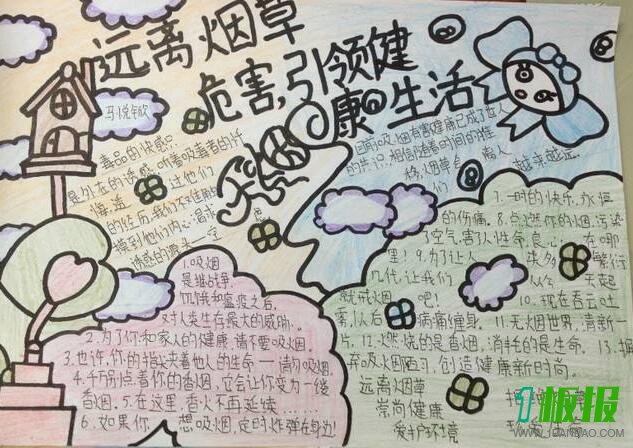 远离烟草
危害,引领健
康生活
马悦钦
毒品的快感只
是外在的诱惑,听着吸毒者的忏
悔,透过他们
的经历,我们不难触
摸到他们内心渴求
诱惑的源头一定
因为吸烟有害健康已成了世人
的共识,相信随着时间的推
移,烟草会离人
越来越远。
1.吸烟
是继战争、
饥饿和瘟疫之后,
对人类生存最大的威胁。
2.为了你和家人的健康,请不要吸烟。
3.也许,你的指尖夹着他人的生命——请勿吸烟。
4.千万别点着你的香烟,它会让你变为一缕
香烟。5.在这里,香火不再延续……
6.如果你想吸烟,定时炸弹在身边!
7.一时的快乐,永恒
的伤痛。8.点燃你的烟,污染
了空气,害人性命,良心在哪
里?9.为了让人类多繁衍
几代,让我们从今天起
就戒烟吧!10.现在吞云吐
雾,以后病痛缠身。11.无烟世界,清新一
片。12.燃烧的是香烟,消耗的是生命。13.摒
弃吸烟陋习,创造健康新时尚。
远离烟草
崇尚健康
爱护环境
1板报
WWW.1BANBAO.COM